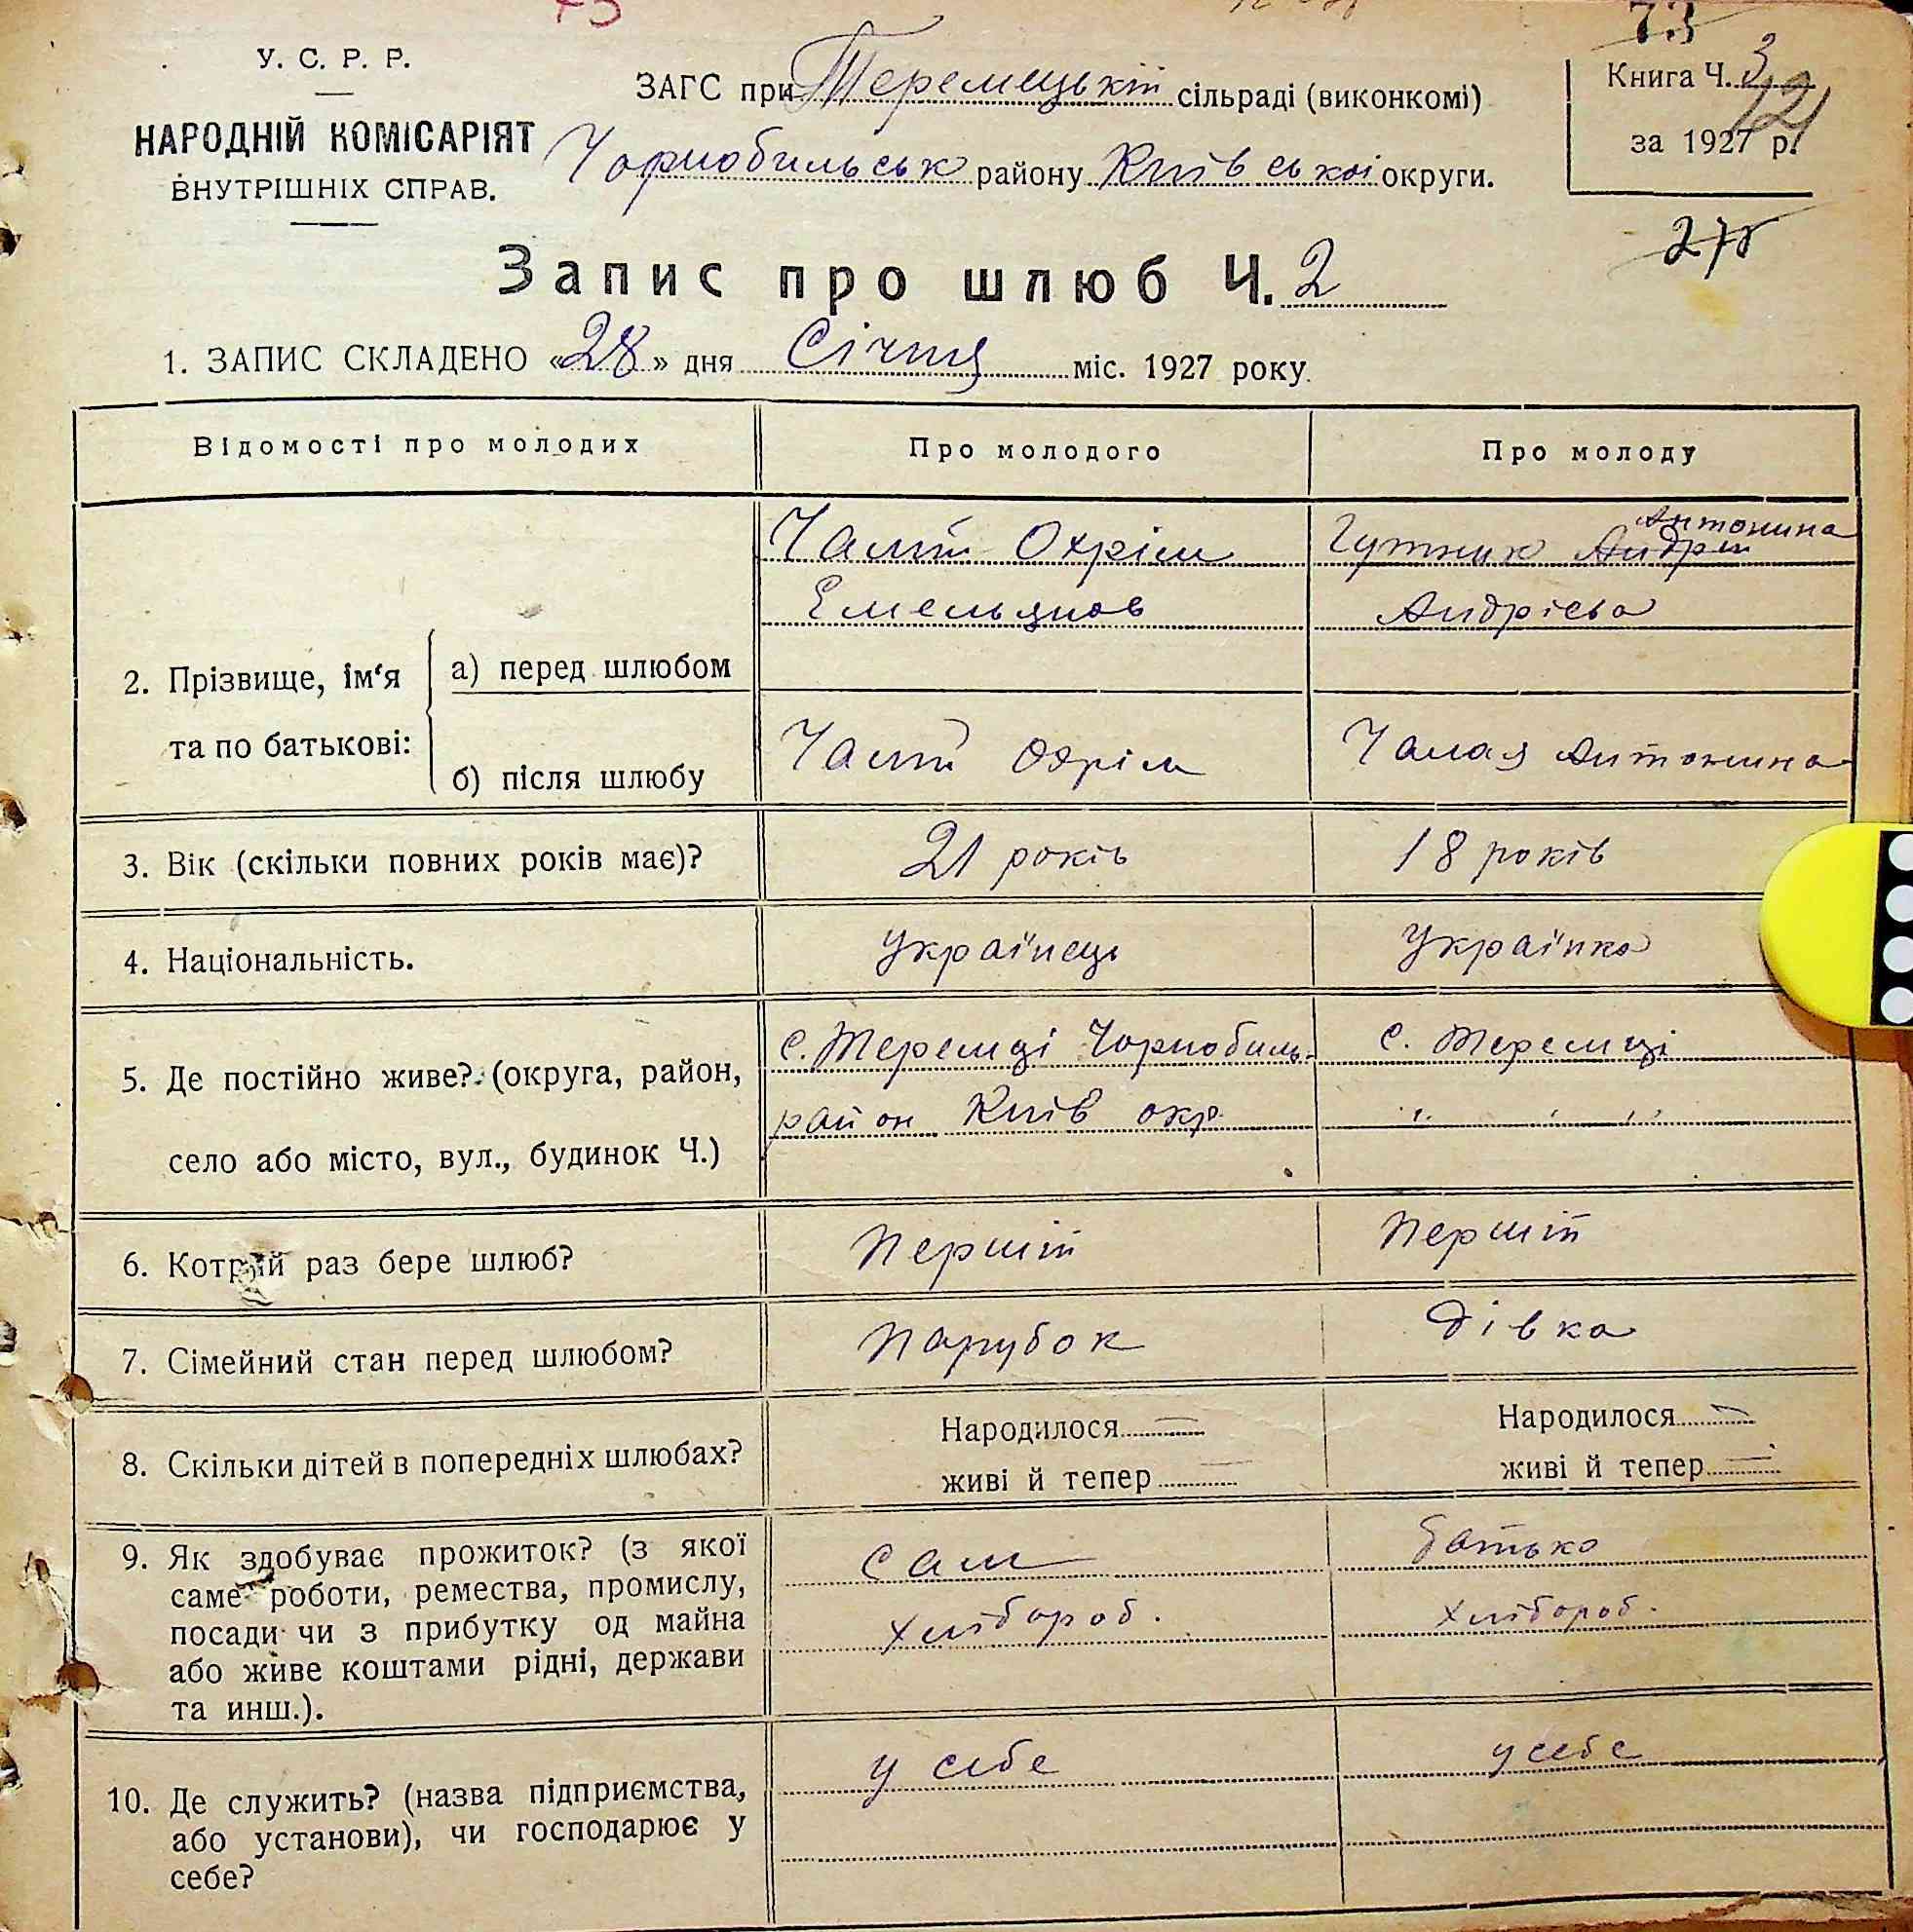 73
У. С. Р. Р.
НАРОДНІЙ КОМІСАРІЯТ
ВНУТРІШНІХ СПРАВ.
ЗАГС при Теремецькій сільраді (виконкомі)
Чорнобильськ району Київської округи.
Книга Ч. 3
за 1927 р.
Запис про шлюб Ч. 2
1. ЗАПИС СКЛАДЕНО «28» дня Січня міс. 1927 року.
Відомості про молодих
Про молодого
Про молоду
2. Прізвище, ім'я та по батькові:
а) перед шлюбом
Чалий Охрім
Емельянов
Антонина
Гутник Андрій
Андрієва
б) після шлюбу
Чалий Охрім
Чалая Антонина
3. Вік (скільки повних років має)?
21 років
18 років
4. Національність.
Українець
Українка
5. Де постійно живе? (округа, район,
село або місто, вул., будинок Ч.)
с. Теремці Чорнобиль.
район Київ окр.
с. Теремці
" " "
6. Котрий раз бере шлюб?
Перший
Перший
7. Сімейний стан перед шлюбом?
Парубок
Дівка
8. Скільки дітей в попередніх шлюбах?
Народилося —
живі й тепер —
Народилося —
живі й тепер —
9. Як здобуває прожиток? (з якої
саме роботи, ремества, промислу,
посади чи з прибутку од майна
або живе коштами рідні, держави
та инш.).
сам
хлібороб.
батько
хлібороб.
10. Де служить? (назва підприємства,
або установи), чи господарює у
себе?
у себе
у себе